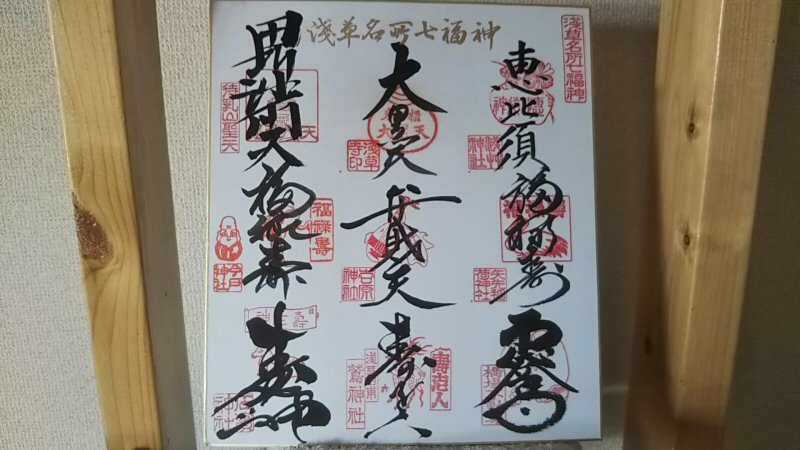 浅草名所七福神
浅草名所七福神
恵比須
浅草
神社
福禄寿
矢先稲
荷神社
大黒天
浅草
寺印
弁財天
吉原
神社
寿老人
寿老人
鷲神社
毘沙門天
待乳山聖天
福禄寿
福禄壽
今戸
神社
寿老神